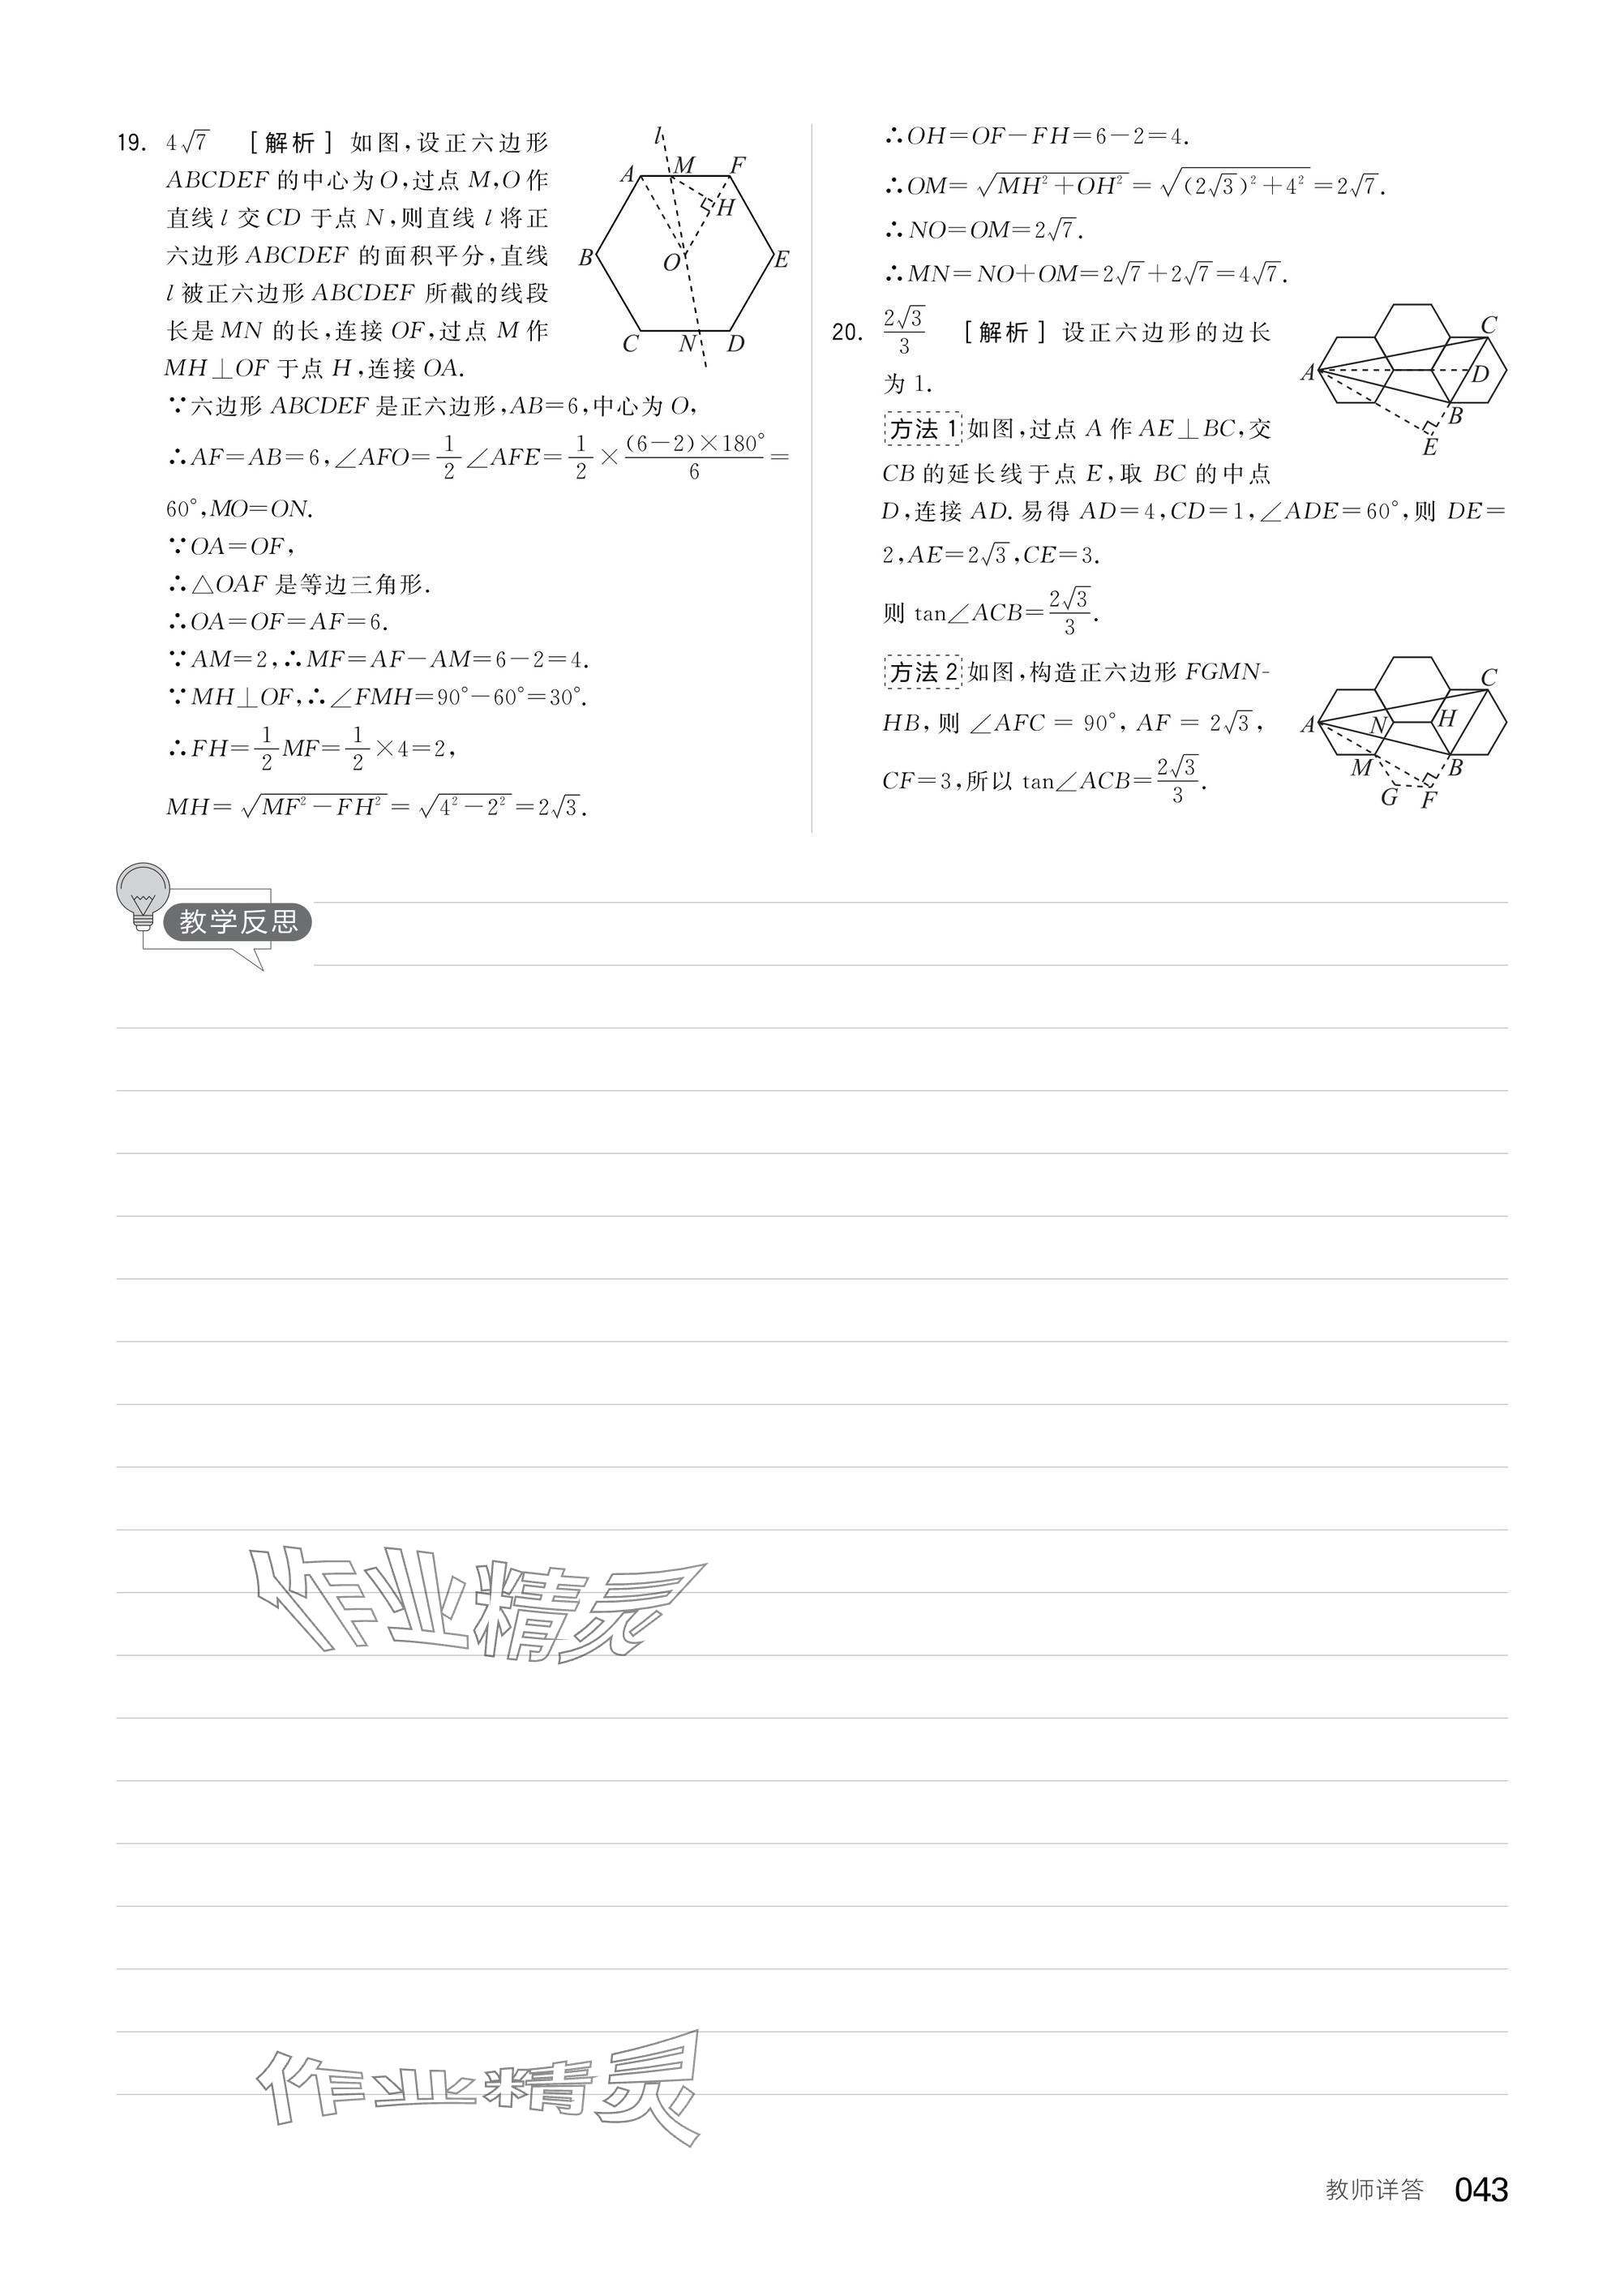 19. 4√7 [解析] 如图,设正六边形
ABCDEF 的中心为 O,过点 M,O 作
直线 l 交 CD 于点 N,则直线 l 将正
六边形 ABCDEF 的面积平分,直线
l 被正六边形 ABCDEF 所截的线段
长是 MN 的长,连接 OF,过点 M 作
MH⊥OF 于点 H,连接 OA.
l
A M F
H
B O E
C N D
∵六边形 ABCDEF 是正六边形,AB=6,中心为 O,
∴AF=AB=6,∠AFO=1/2∠AFE=1/2×(6-2)×180°/6=
60°,MO=ON.
∵OA=OF,
∴△OAF 是等边三角形.
∴OA=OF=AF=6.
∵AM=2,∴MF=AF-AM=6-2=4.
∵MH⊥OF,∴∠FMH=90°-60°=30°.
∴FH=1/2MF=1/2×4=2,
MH=√(MF²-FH²)=√(4²-2²)=2√3.
∴OH=OF-FH=6-2=4.
∴OM=√(MH²+OH²)=√((2√3)²+4²)=2√7.
∴NO=OM=2√7.
∴MN=NO+OM=2√7+2√7=4√7.
20. 2√3/3 [解析] 设正六边形的边长
为 1.
方法 1 如图,过点 A 作 AE⊥BC,交
CB 的延长线于点 E,取 BC 的中点
D,连接 AD. 易得 AD=4,CD=1,∠ADE=60°,则 DE=
2,AE=2√3,CE=3.
则 tan∠ACB=2√3/3.
C
A D
B
E
方法 2 如图,构造正六边形 FGMN-
HB,则 ∠AFC = 90°, AF = 2√3,
CF=3,所以 tan∠ACB=2√3/3.
C
A N H
M B
G F
教学反思
作业精灵
作业精灵
教师详答 043